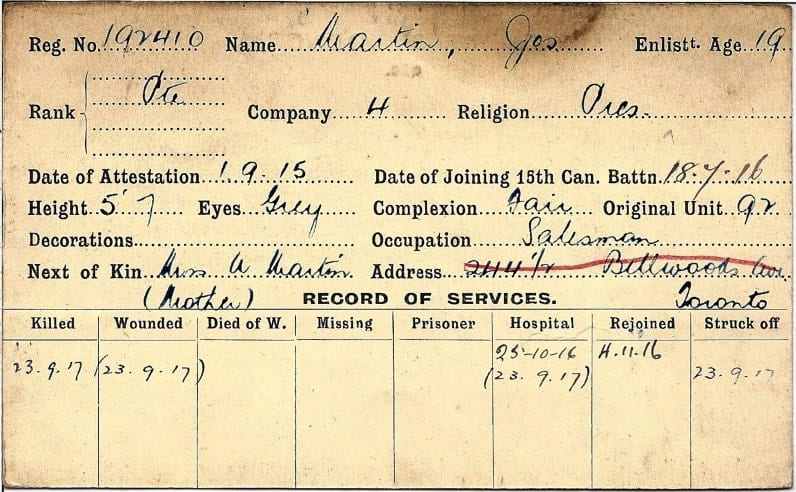 Reg. No. 192410 Name Martin, Jos Enlistt. Age 19
Rank Pte Company 4 Religion Pres.
Date of Attestation 1.9.15 Date of Joining 15th Can. Battn. 18-7-16
Height 5' 7 Eyes Grey Complexion Fair Original Unit 92
Decorations Occupation Salesman
Next of Kin Mrs A Martin Address 244½ Bellwoods Ave.
(Mother) RECORD OF SERVICES. Toronto
Killed Wounded Died of W. Missing Prisoner Hospital Rejoined Struck off
25-10-16 4.11.16
23.9.17 (23.9.17) (23.9.17) 23.9.17